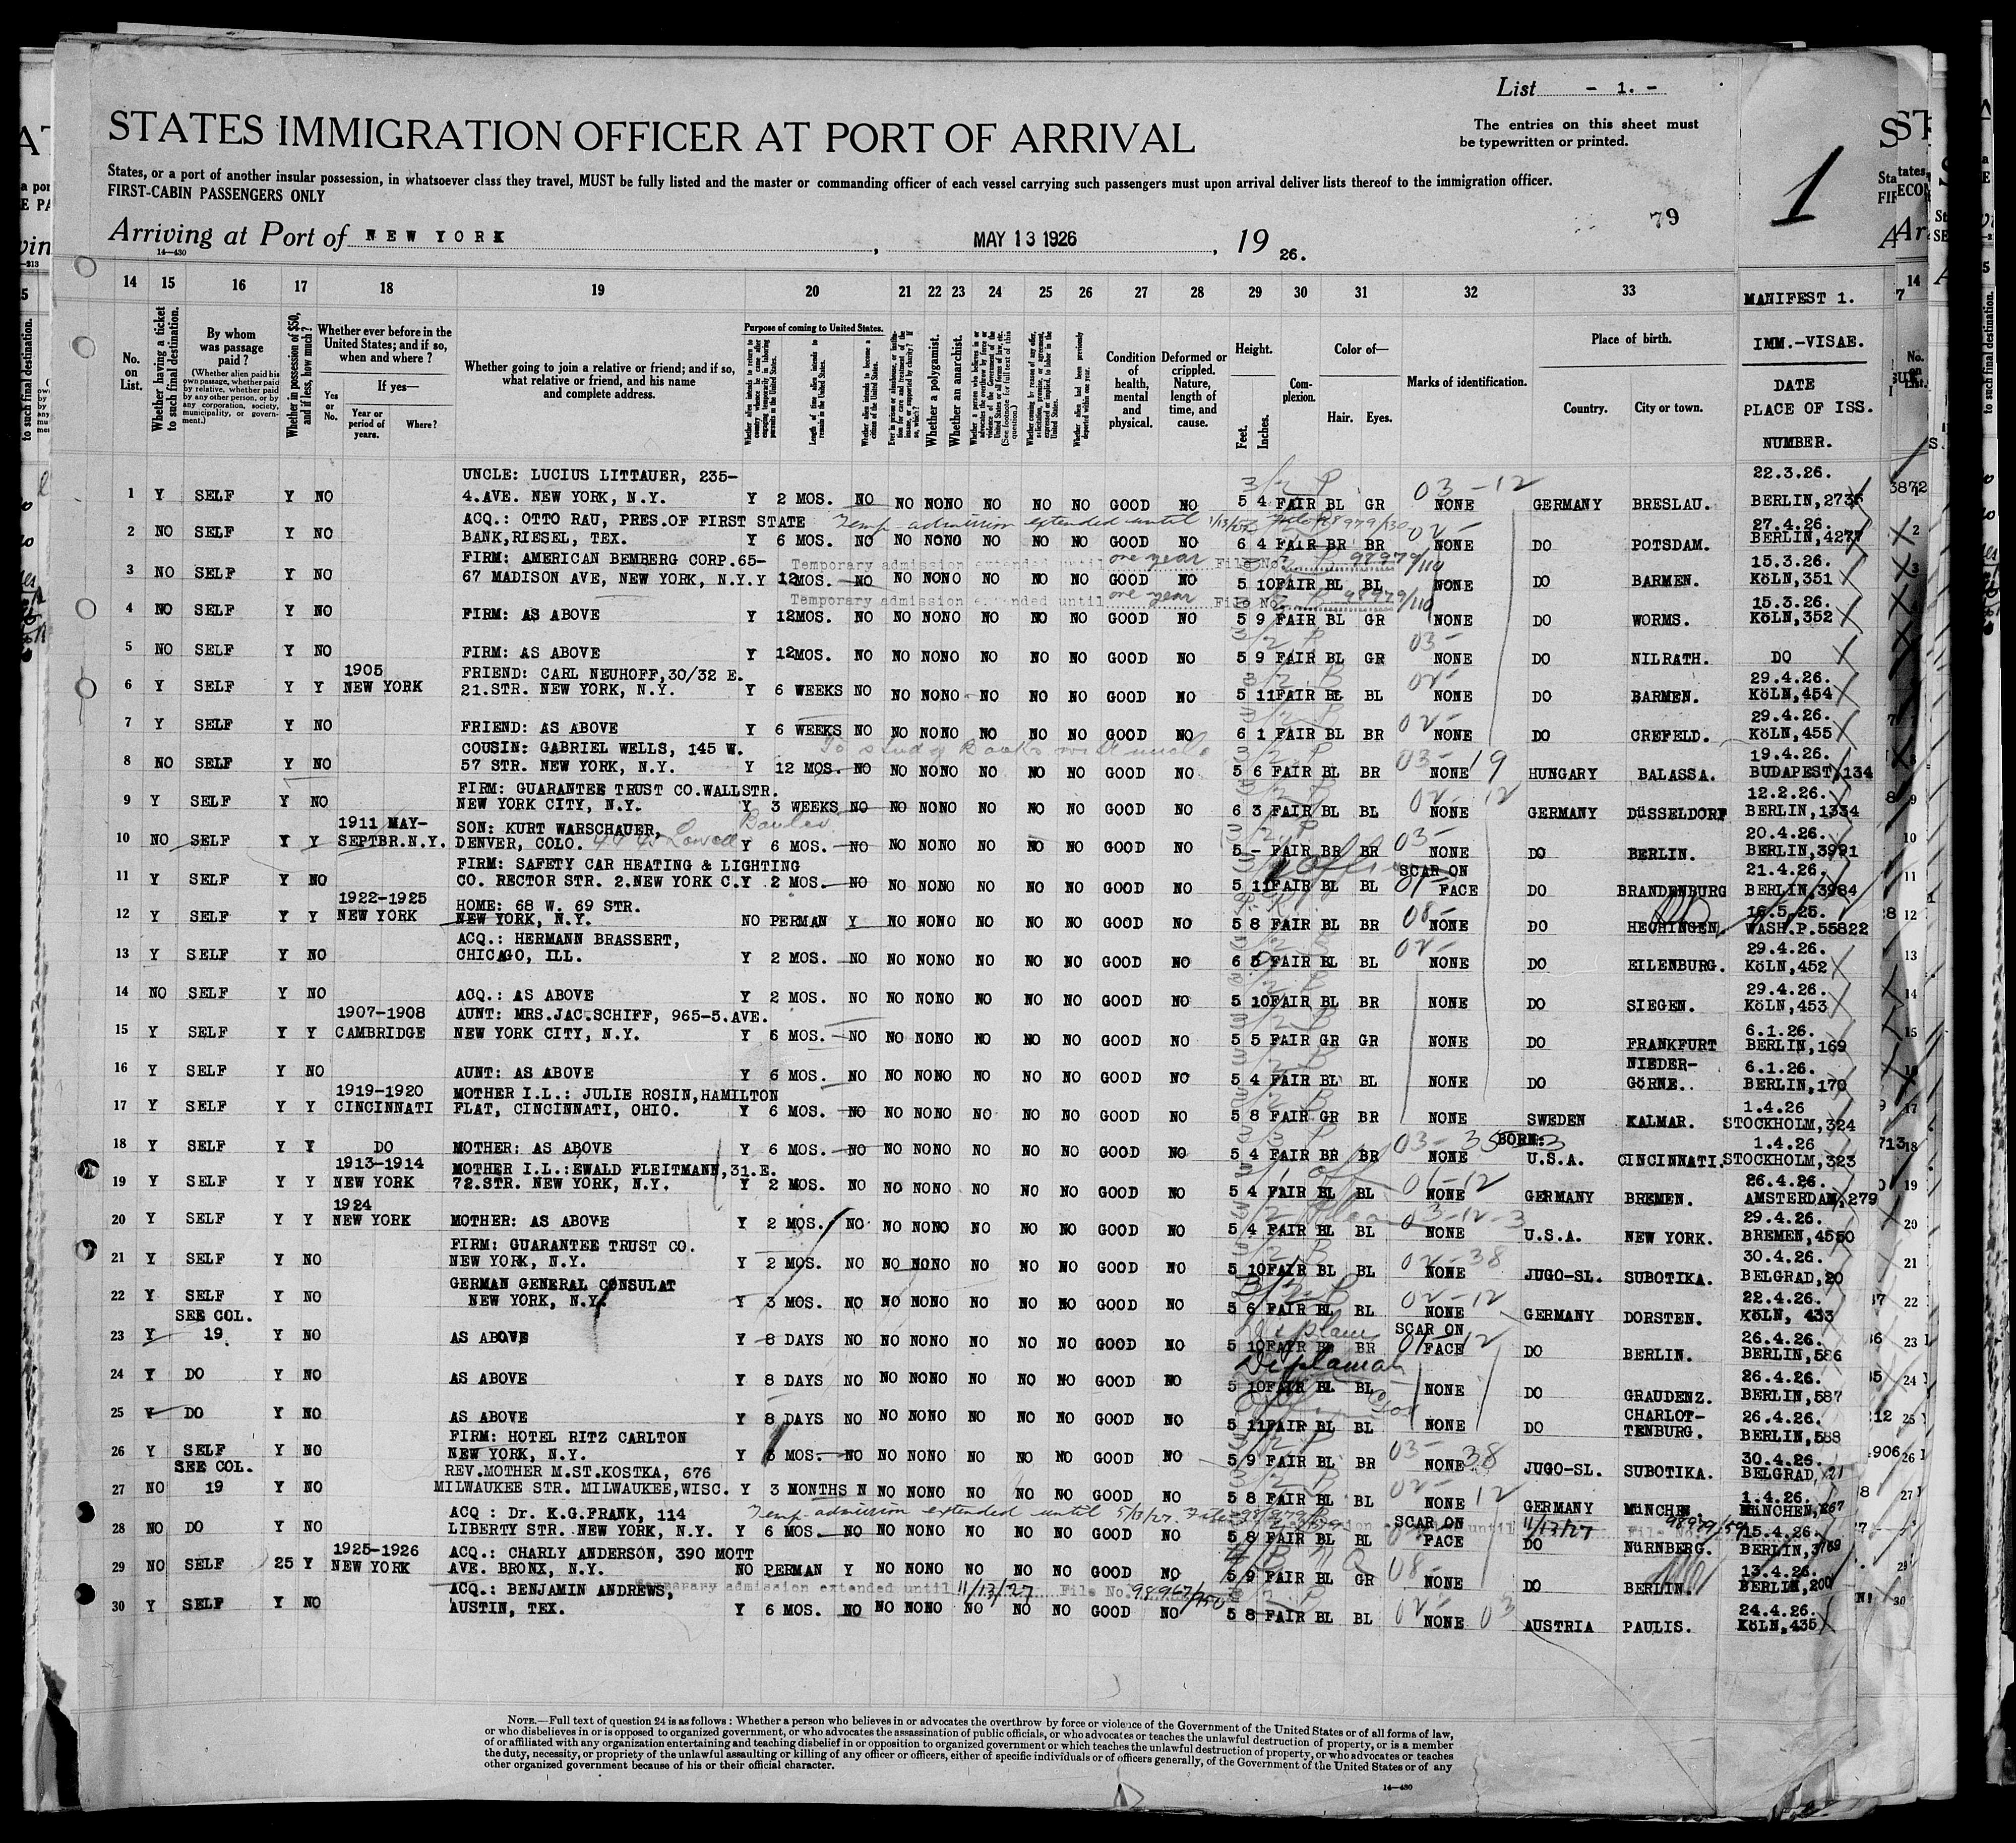 List - 1. -
STATES IMMIGRATION OFFICER AT PORT OF ARRIVAL
The entries on this sheet must
be typewritten or printed.
States, or a port of another insular possession, in whatsoever class they travel, MUST be fully listed and the master or commanding officer of each vessel carrying such passengers must upon arrival deliver lists thereof to the immigration officer.
FIRST-CABIN PASSENGERS ONLY
79
1
Arriving at Port of NEW YORK, MAY 13 1926, 19 26.
14—430
14 15 16 17 18 19 20 21 22 23 24 25 26 27 28 29 30 31 32 33 MANIFEST 1.
No. on List.
Whether having a ticket to such final destination.
By whom was passage paid?
(Whether alien paid his own passage, whether paid by relative, whether paid by any other person, or by any corporation, society, municipality, or government.)
Whether in possession of $50, and if less, how much?
Whether ever before in the United States; and if so, when and where?
Yes or No.
If yes—
Year or period of years.
Where?
Whether going to join a relative or friend; and if so, what relative or friend, and his name and complete address.
Purpose of coming to United States.
Whether alien intends to return to country whence he came after engaging temporarily in laboring pursuits in the United States.
Length of time alien intends to remain in the United States.
Whether alien intends to become a citizen of the United States.
Ever in prison or almshouse, or institution for care and treatment of the insane, or supported by charity? If so, which?
Whether a polygamist.
Whether an anarchist.
Whether coming by reason of any offer, solicitation, promise, or agreement, expressed or implied, to labor in the United States.
Whether alien had been previously deported within one year.
Condition of health, mental and physical.
Deformed or crippled. Nature, length of time, and cause.
Height.
Feet. Inches.
Complexion.
Color of—
Hair. Eyes.
Marks of identification.
Place of birth.
Country. City or town.
IMM.-VISAE.
DATE
PLACE OF ISS.
NUMBER.
UNCLE: LUCIUS LITTAUER, 235- 22.3.26.
1 Y SELF Y NO 4.AVE. NEW YORK, N.Y. Y 2 MOS. NO NO NONO NO NO NO GOOD NO 5 4 FAIR BL GR NONE GERMANY BRESLAU. BERLIN,2736
03-12
ACQ.: OTTO RAU, PRES.OF FIRST STATE 27.4.26.
Temp admission extended until
2 NO SELF Y NO BANK,RIESEL, TEX. Y 6 MOS. NO NO NONO NO NO NO GOOD NO 6 4 FAIR BR BR NONE DO POTSDAM. BERLIN,4277
FIRM: AMERICAN BEMBERG CORP.65- 15.3.26.
Temporary admission extended until one year File No. 98979/110
3 NO SELF Y NO 67 MADISON AVE, NEW YORK, N.Y. Y 12 MOS. NO NO NONO NO NO NO GOOD NO 5 10 FAIR BL BL NONE DO BARMEN. KÖLN,351
Temporary admission extended until one year File No. 98979/110
15.3.26.
4 NO SELF Y NO FIRM: AS ABOVE Y 12MOS. NO NO NONO NO NO NO GOOD NO 5 9 FAIR BL GR NONE DO WORMS. KÖLN,352
5 NO SELF Y NO FIRM: AS ABOVE Y 12MOS. NO NO NONO NO NO NO GOOD NO 5 9 FAIR BL GR NONE DO NILRATH. DO
1905 FRIEND: CARL NEUHOFF,30/32 E. 29.4.26.
6 Y SELF Y Y NEW YORK 21.STR. NEW YORK, N.Y. Y 6 WEEKS NO NO NONO NO NO NO GOOD NO 5 11 FAIR BL BL NONE DO BARMEN. KÖLN,454
29.4.26.
7 Y SELF Y NO FRIEND: AS ABOVE Y 6 WEEKS NO NO NONO NO NO NO GOOD NO 6 1 FAIR BL BR NONE DO CREFELD. KÖLN,455
COUSIN: GABRIEL WELLS, 145 W. 19.4.26.
To study Books with uncle
8 NO SELF Y NO 57 STR. NEW YORK, N.Y. Y 12 MOS. NO NO NONO NO NO NO GOOD NO 5 6 FAIR BL BR NONE 19 HUNGARY BALASSA. BUDAPEST,134
FIRM: GUARANTEE TRUST CO.WALLSTR. 12.2.26.
9 Y SELF Y NO NEW YORK CITY, N.Y. Y 3 WEEKS NO NO NONO NO NO NO GOOD NO 6 3 FAIR BL BL NONE GERMANY DÜSSELDORF BERLIN,1334
1911 MAY- SON: KURT WARSCHAUER, 20.4.26.
10 NO SELF Y Y SEPTBR.N.Y. DENVER, COLO. Y 6 MOS. NO NO NONO NO NO NO GOOD NO 5 - FAIR BR BR NONE DO BERLIN. BERLIN,3991
FIRM: SAFETY CAR HEATING & LIGHTING SCAR ON 21.4.26.
11 Y SELF Y NO CO. RECTOR STR. 2.NEW YORK C. Y 2 MOS. NO NO NONO NO NO NO GOOD NO 5 11 FAIR BL BL FACE DO BRANDENBURG BERLIN,3984
1922-1925 HOME: 68 W. 69 STR. 16.5-25.
12 Y SELF Y Y NEW YORK NEW YORK, N.Y. NO PERMAN Y NO NONO NO NO NO GOOD NO 5 8 FAIR BL BR NONE DO HECHINGEN WASH.P.55822
ACQ.: HERMANN BRASSERT, 29.4.26.
13 Y SELF Y NO CHICAGO, ILL. Y 2 MOS. NO NO NONO NO NO NO GOOD NO 6 FAIR BL BL NONE DO EILENBURG. KÖLN,452
29.4.26.
14 NO SELF Y NO ACQ.: AS ABOVE Y 2 MOS. NO NO NONO NO NO NO GOOD NO 5 10 FAIR BL BR NONE DO SIEGEN. KÖLN,453
1907-1908 AUNT: MRS.JAC.SCHIFF, 965-5.AVE. 6.1.26.
15 Y SELF Y Y CAMBRIDGE NEW YORK CITY, N.Y. Y 6 MOS. NO NO NONO NO NO NO GOOD NO 5 5 FAIR GR GR NONE DO FRANKFURT BERLIN,169
NIEDER- 6.1.26.
16 Y SELF Y NO AUNT: AS ABOVE Y 6 MOS. NO NO NONO NO NO NO GOOD NO 5 4 FAIR BL BL NONE DO GÖRNE. BERLIN,170
1919-1920 MOTHER I.L.: JULIE ROSIN,HAMILTON 1.4.26
17 Y SELF Y Y CINCINNATI FLAT, CINCINNATI, OHIO. Y 6 MOS. NO NO NONO NO NO NO GOOD NO 5 8 FAIR GR BR NONE SWEDEN KALMAR. STOCKHOLM,324
BORN: 1.4.26
18 Y SELF Y Y DO MOTHER: AS ABOVE Y 6 MOS. NO NO NONO NO NO NO GOOD NO 5 4 FAIR BR BR NONE U.S.A. CINCINNATI. STOCKHOLM,323
1913-1914 MOTHER I.L.:EWALD FLEITMANN,31.E. 26.4.26.
19 Y SELF Y Y NEW YORK 72.STR. NEW YORK, N.Y. Y 2 MOS. NO NO NONO NO NO NO GOOD NO 5 4 FAIR BL BL NONE GERMANY BREMEN. AMSTERDAM,279
01-12
1924 29.4.26.
20 Y SELF Y Y NEW YORK MOTHER: AS ABOVE Y 2 MOS. NO NO NONO NO NO NO GOOD NO 5 4 FAIR BL BL NONE U.S.A. NEW YORK. BREMEN,4550
03-12-3
FIRM: GUARANTEE TRUST CO. 30.4.26.
21 Y SELF Y NO NEW YORK, N.Y. Y 2 MOS. NO NO NONO NO NO NO GOOD NO 5 10 FAIR BL BL NONE JUGO-SL. SUBOTIKA. BELGRAD,20
02-38
GERMAN GENERAL CONSULAT 22.4.26.
22 Y SELF Y NO NEW YORK, N.Y. Y 3 MOS. NO NO NONO NO NO NO GOOD NO 5 6 FAIR BL BL NONE GERMANY DORSTEN. KÖLN, 433
02-12
SEE COL. SCAR ON 26.4.26.
23 Y 19 Y NO AS ABOVE Y 8 DAYS NO NO NONO NO NO NO GOOD NO 5 10 FAIR BL BR FACE DO BERLIN. BERLIN,586
Diplomat
26.4.26.
24 Y DO Y NO AS ABOVE Y 8 DAYS NO NO NONO NO NO NO GOOD NO 5 10 FAIR BL BL NONE DO GRAUDENZ. BERLIN,587
CHARLOT- 26.4.26.
25 Y DO Y NO AS ABOVE Y 8 DAYS NO NO NONO NO NO NO GOOD NO 5 11 FAIR BL BL NONE DO TENBURG. BERLIN,588
FIRM: HOTEL RITZ CARLTON 30.4.26.
26 Y SELF Y NO NEW YORK, N.Y. Y 6 MOS. NO NO NONO NO NO NO GOOD NO 5 9 FAIR BL BR NONE 38 JUGO-SL. SUBOTIKA. BELGRAD, 21
SEE COL. REV.MOTHER M.ST.KOSTKA, 676 1.4.26.
27 NO 19 Y NO MILWAUKEE STR. MILWAUKEE,WISC. Y 3 MONTHS N NO NONO NO NO NO GOOD NO 5 8 FAIR BL BL NONE 12 GERMANY MÜNCHEN MÜNCHEN,267
Temp admission extended until 5/13/27.
ACQ : Dr. K.G.FRANK, 114 SCAR ON 11/13/27 15.4.26.
28 NO DO Y NO LIBERTY STR. NEW YORK, N.Y. Y 6 MOS. NO NO NONO NO NO NO GOOD NO 5 8 FAIR BL BL FACE DO NÜRNBERG. BERLIN,3769
1925-1926 ACQ.: CHARLY ANDERSON, 390 MOTT 13.4.26.
29 NO SELF 25 Y NEW YORK AVE. BRONX, N.Y. NO PERMAN Y NO NONO NO NO NO GOOD NO 5 9 FAIR BL GR NONE DO BERLIN. BERLIN,200
ACQ.: BENJAMIN ANDREWS, 24.4.26.
Temporary admission extended until 11/13/27 File No. 98967/750
30 Y SELF Y NO AUSTIN, TEX. Y 6 MOS. NO NO NONO NO NO NO GOOD NO 5 8 FAIR BL BL NONE 03 AUSTRIA PAULIS. KÖLN,435
NOTE.—Full text of question 24 is as follows: Whether a person who believes in or advocates the overthrow by force or violence of the Government of the United States or of all forms of law,
or who disbelieves in or is opposed to organized government, or who advocates the assassination of public officials, or who advocates or teaches the unlawful destruction of property, or is a member
of or affiliated with any organization entertaining and teaching disbelief in or opposition to organized government or which teaches the unlawful destruction of property, or who advocates or teaches
the duty, necessity, or propriety of the unlawful assaulting or killing of any officer or officers, either of specific individuals or of officers generally, of the Government of the United States or of any
other organized government because of his or their official character.
14—430